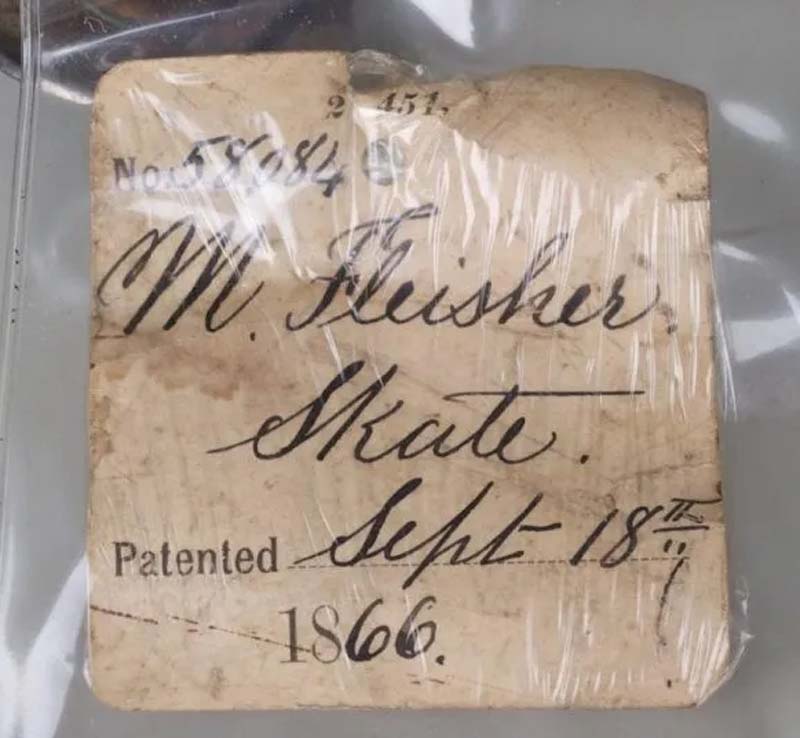 2 451.
No. 58,084
M. Fleisher.
Skate.
Patented Sept 18th
1866.